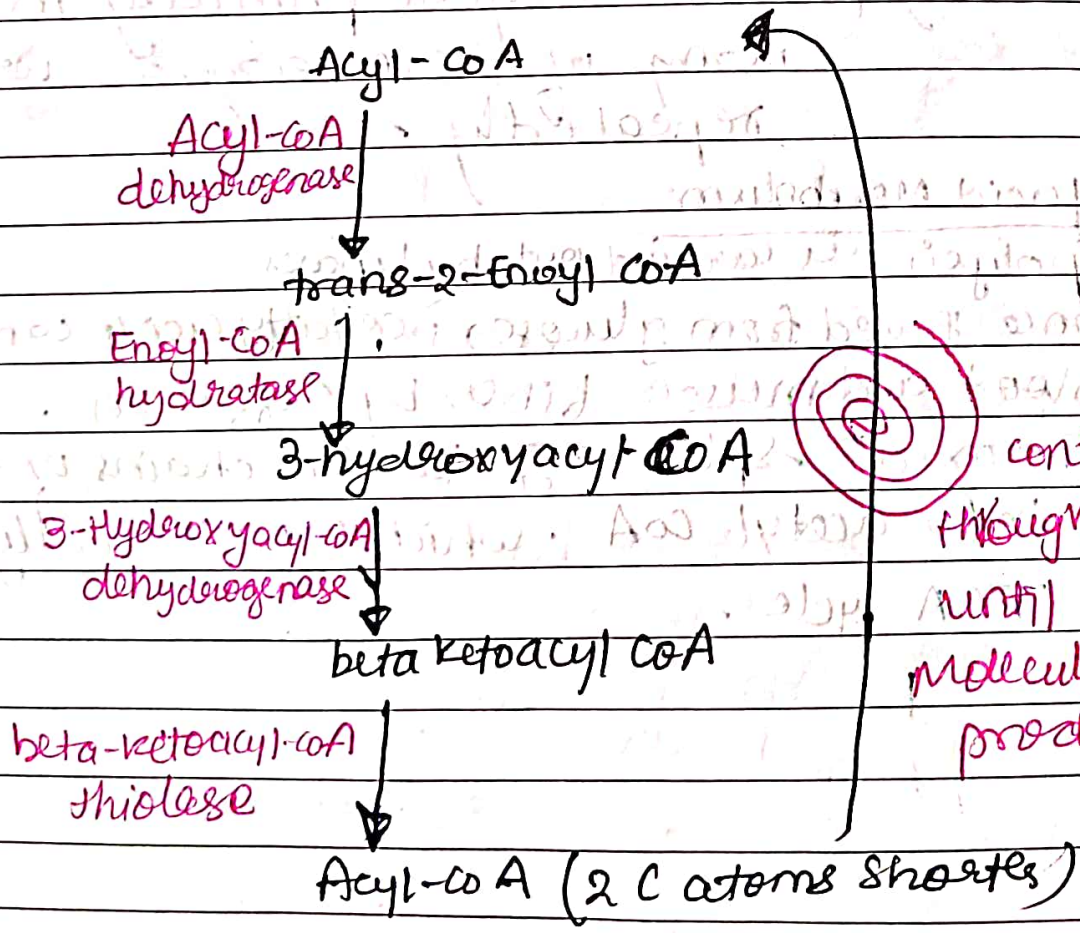 Acyl-CoA
Acyl-CoA
dehydrogenase
trans-2-Enoyl CoA
Enoyl-CoA
hydratase
3-hydroxyacyl CoA
3-Hydroxyacyl-CoA
dehydrogenase
beta ketoacyl CoA
beta-ketoacyl-CoA
thiolase
Acyl-CoA (2 C atoms shorter)
until